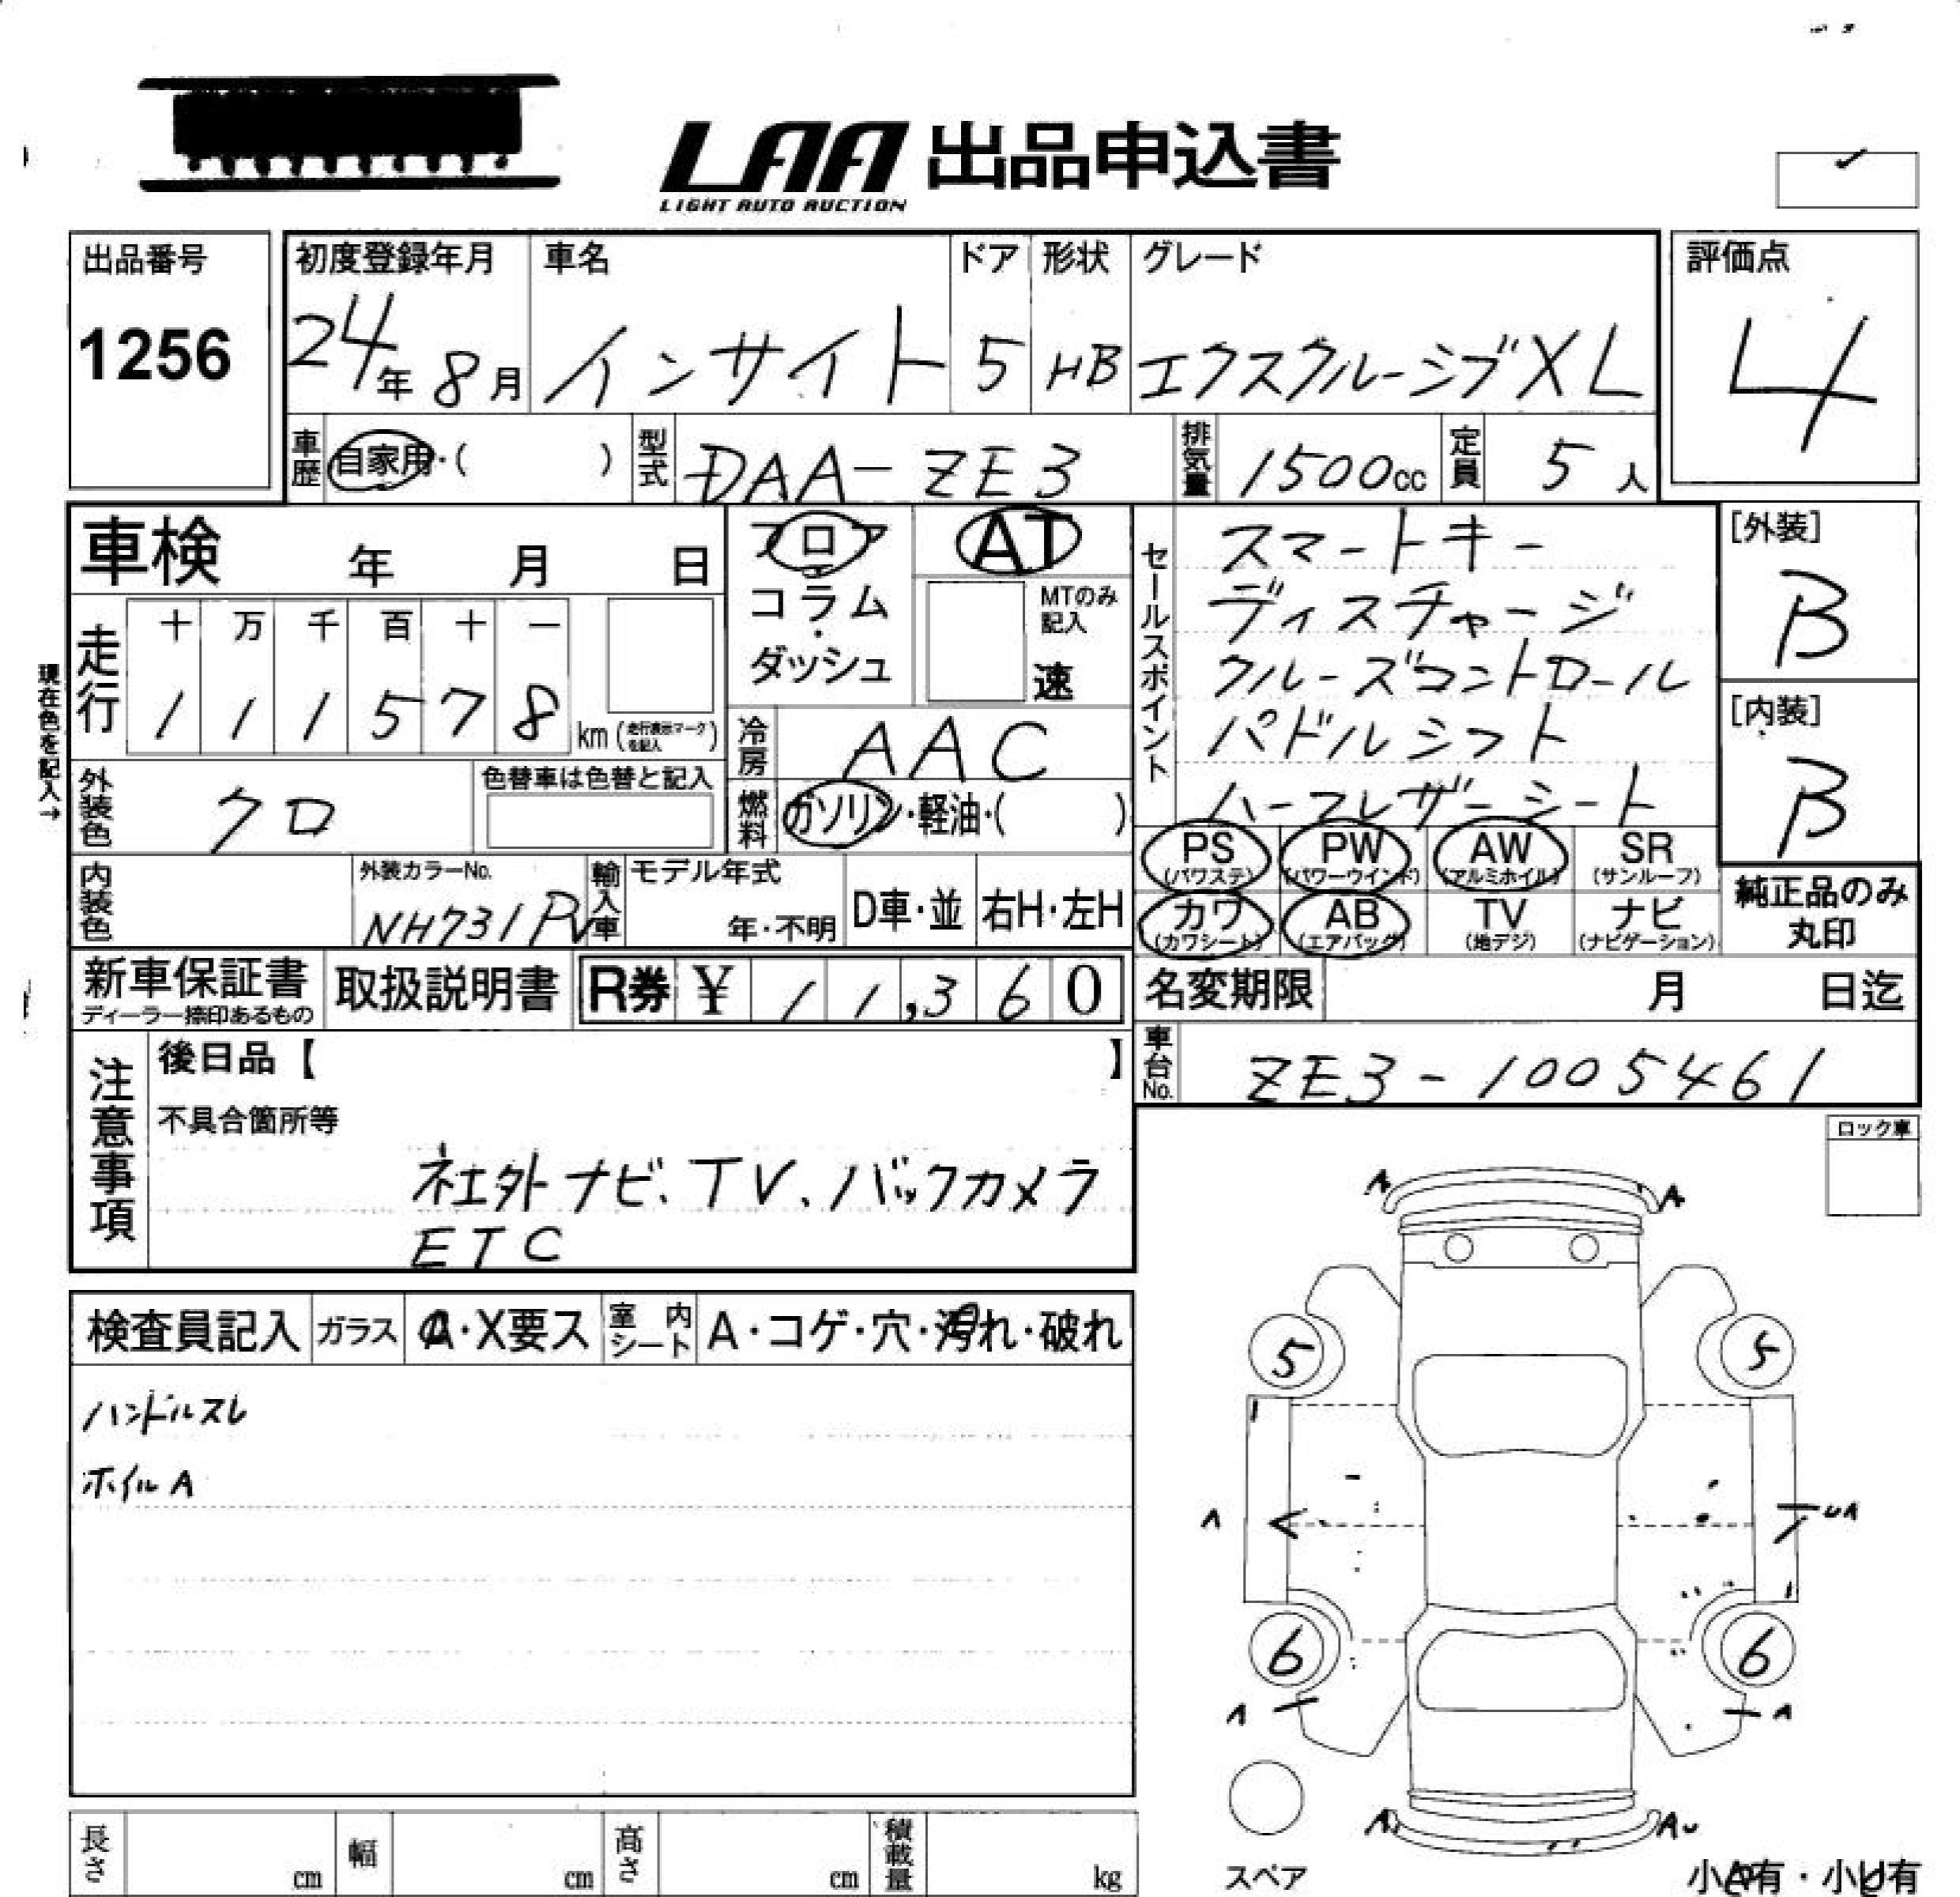 LAA 出品申込書
LIGHT AUTO AUCTION
出品番号
1256
初度登録年月
24年 8月
車名
インサイト
ドア
5
形状
HB
グレード
エクスクルーシブXL
評価点
4
車歴 自家用・( )
型式 DAA-ZE3
排気量 1500cc
定員 5人
車検 年 月 日
フロア・コラム・ダッシュ
AT
MTのみ記入
速
セールスポイント
スマートキー
ディスチャージ
クルーズコントロール
パドルシフト
ハーフレザーシート
[外装]
B
[内装]
B
現在色を記入→
走行 十 万 千 百 十 一
1 1 1 5 7 8 km (走行表示マークを記入)
冷房 AAC
外装色 クロ
色替車は色替と記入
燃料 ガソリン・軽油・( )
PS (パワステ) PW (パワーウインド) AW (アルミホイル) SR (サンルーフ)
カワ (カワシート) AB (エアバッグ) TV (地デジ) ナビ (ナビゲーション)
純正品のみ丸印
内装色
外装カラーNo.
NH731PV
輸入車 モデル年式
年・不明
D車・並 右H・左H
新車保証書
ディーラー捺印あるもの
取扱説明書
R券 ¥ 11,360
名変期限 月 日迄
車台No. ZE3-1005461
注意事項
後日品【 】
不具合箇所等
社外ナビ、TV、バックカメラ
ETC
ロック車
検査員記入 ガラス A・X要ス 室内シート A・コゲ・穴・汚れ・破れ
ハンドルスレ
ホイルA
A A
5 5
A UA
6 6
A A
A AU
スペア
小A有・小U有
長さ cm 幅 cm 高さ cm 積載量 kg